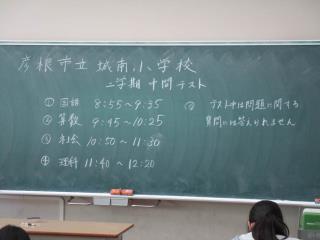 彦根市立 城南小学校
二学期 中間テスト
① 国語 8:55～9:35
② 算数 9:45～10:25
③ 社会 10:50～11:30
④ 理科 11:40～12:20
テスト中は問題に関する
質問には答えられません